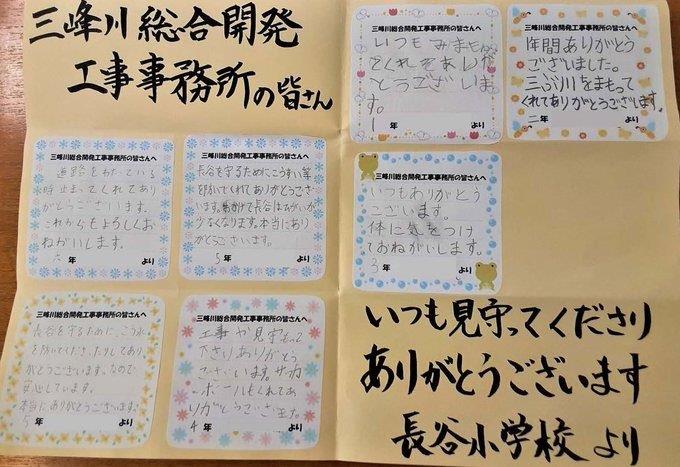 三峰川総合開発
工事事務所の皆さん
三峰川総合開発工事事務所の皆さんへ
いつもみまもっ
てくれてありが
とうございま
す。
1年 より
三峰川総合開発工事事務所の皆さんへ
1年間ありがとう
ございました。
三ぶ川をまもって
くれてありがとうございます
二年 より
三峰川総合開発工事事務所の皆さんへ
道路をわたっている
時止まってくれてあり
がとうございます。
これからもよろしくお
ねがいします。
六年 より
三峰川総合開発工事事務所の皆さんへ
長谷を守るためにこうすい等
防いでくれてありがとうござ
います。おかげで長谷はひがいが
少なくなります。本当にあり
がとうございます。
5年 より
三峰川総合開発工事事務所の皆さんへ
いつもありがとう
ございます。
体に気をつけ
ておねがいします。
3年 より
三峰川総合開発工事事務所の皆さんへ
長谷を守るために、こう水
を防いでくださったりしてあり
がとうございます。なので
安心しています。
本当にありがとうございます。
5年 より
三峰川総合開発工事事務所の皆さんへ
工事や見守って
下さりありがとう
ございます。サッカ
ーボールもくれてあ
りがとうございます。
4年 より
いつも見守ってくださり
ありがとうございます
長谷小学校より